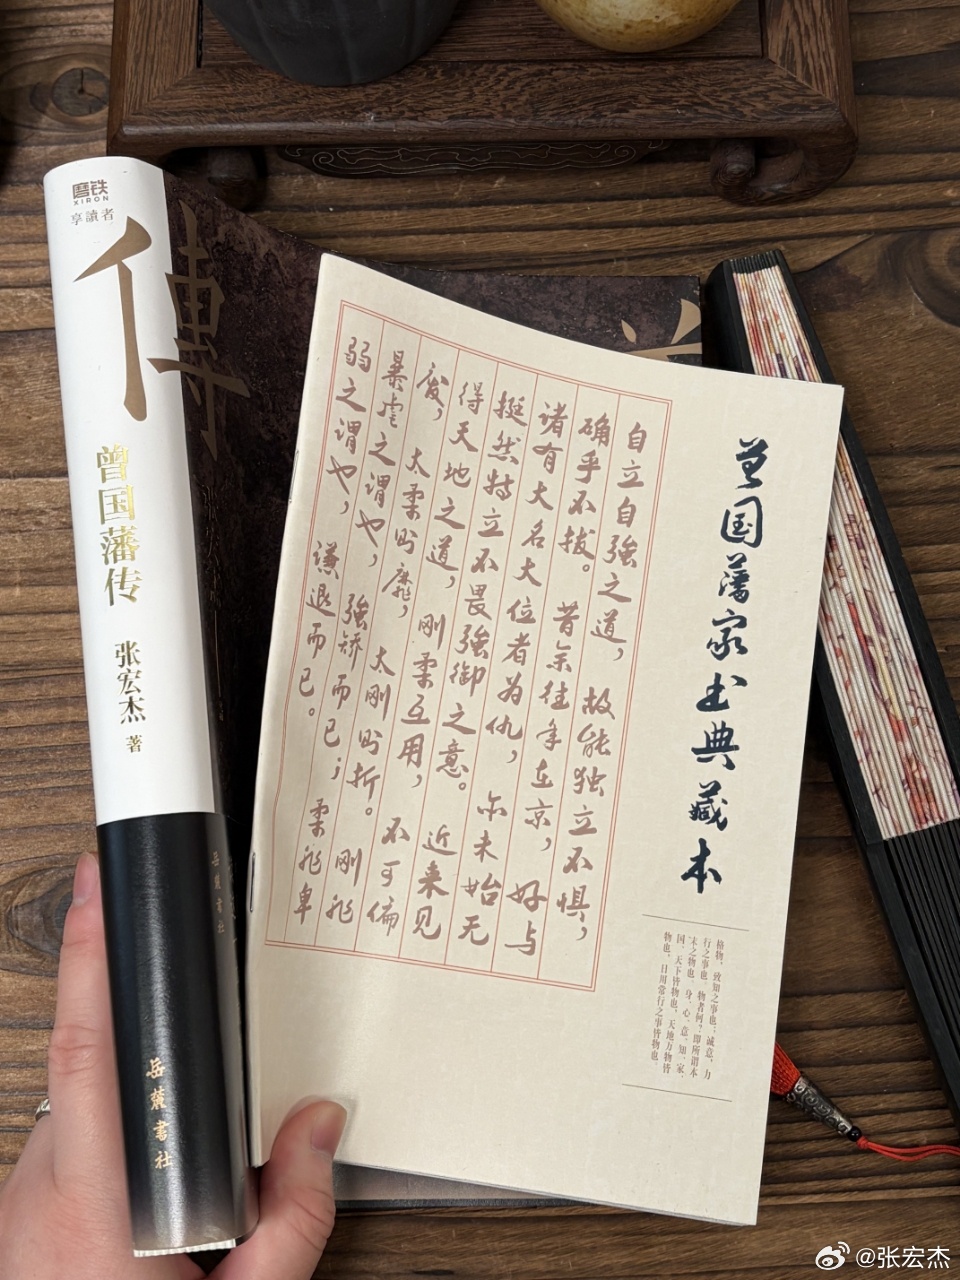 磨铁
XIRON
享讀者
傳
曾国藩传
张宏杰 著
岳麓書社
岳麓書社
曾国藩家书典藏本
自立自強之道，故能独立不惧，
确乎不拔。昔余往年在京，好与
诸有大名大位者为仇，亦未始无
挺然特立不畏強御之意。近来见
得天地之道，刚柔互用，不可偏
废，太柔则靡，太刚则折。刚非
暴虐之谓也，強矫而已；柔非卑
弱之谓也，谦退而已。
格物，致知之事也；诚意，力
行之事也。物者何？即所谓本
末之物也。身、心、意、知、家、
国、天下皆物也，天地万物皆
物也，日用常行之事皆物也。
@张宏杰